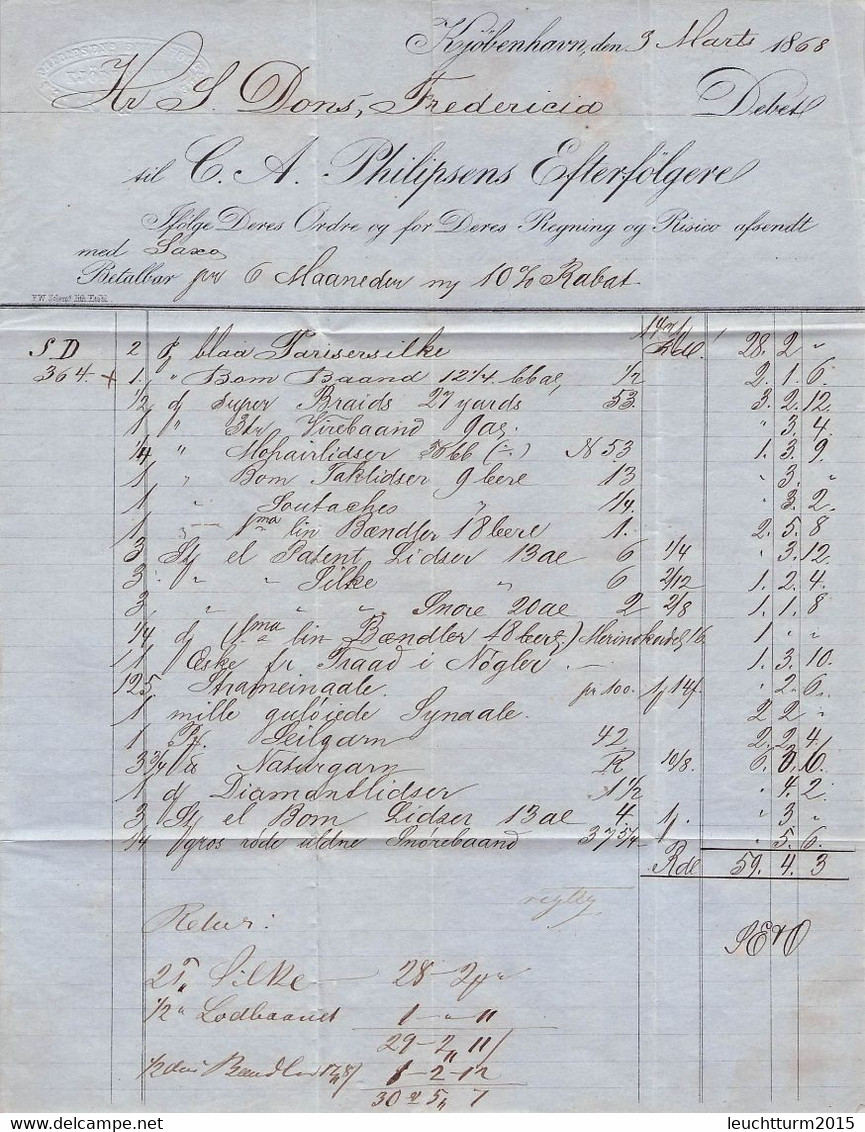 Kjöbenhavn, den 3 Marts 1868
Hr S. Dons, Fredericia Debet
til C. A. Philipsens Efterfölgere
Ifölge Deres Ordre og for Deres Regning og Risico afsendt
med Saxo
Betalbar pr 6 Maaneder 10% Rabat
S D 2 blaa Parisersilke 28. 2 "
364. + 1. " Bom Baand 12 1/4 1/2 2. 1. 6.
1/2 d Super Braids 27 yards 53. 3. 2. 12.
1 " " 3. 4.
1/4 " Mohairlidser N 53. 1. 3. 9.
1 " Bom Taklidser 9 bere 13 " 3. "
1 " Soutaches " 1/4. " 3. 2.
1 pma lin Bændler 18 bere 1. 2. 5. 8
3 St el Patent Lidser 13 ae 6 1/4 " 3. 12.
3 " " Silke " 6 2/12 1. 2. 4.
3 " " " Snore 20 ae 2 2/8 1. 1. 8
1/4 d (pma lin Bændler 48 bere) 16. 1 " "
1 Æske fr Traad i Nögler. — 1. 3. 10.
125 Strameinaale. pr 100. " 2. 6.
1 mille guløiede Synaale. 2 2 "
1 Pk. Seilgarn 42. 2. 2. 4
3 3/4 Naturgarn R 10/8. 6. 0. 10.
1 d Diamantlidser 1 1/2 " 4. 2.
3 St el Bom Lidser 13 ae 4. " 3 "
1/4 gros röde uldne Snörebaand 37 " 5. 6.
Rdl 59. 4. 3
Retur:
S E & O
2 Silke — 28 - 2
1/2 " Lodbaand 1 - " 11
29 - 2 " 11
1/2 Bændler 1 - 2 - 12
30 " 5 " 7
leuchtturm2015